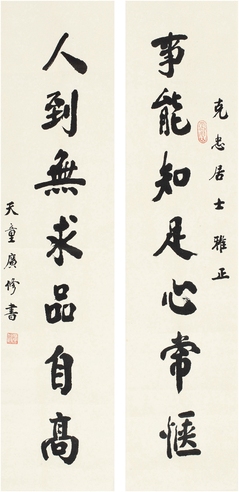 克惠居士雅正
事能知足心常惬
人到無求品自高
天童廣修書